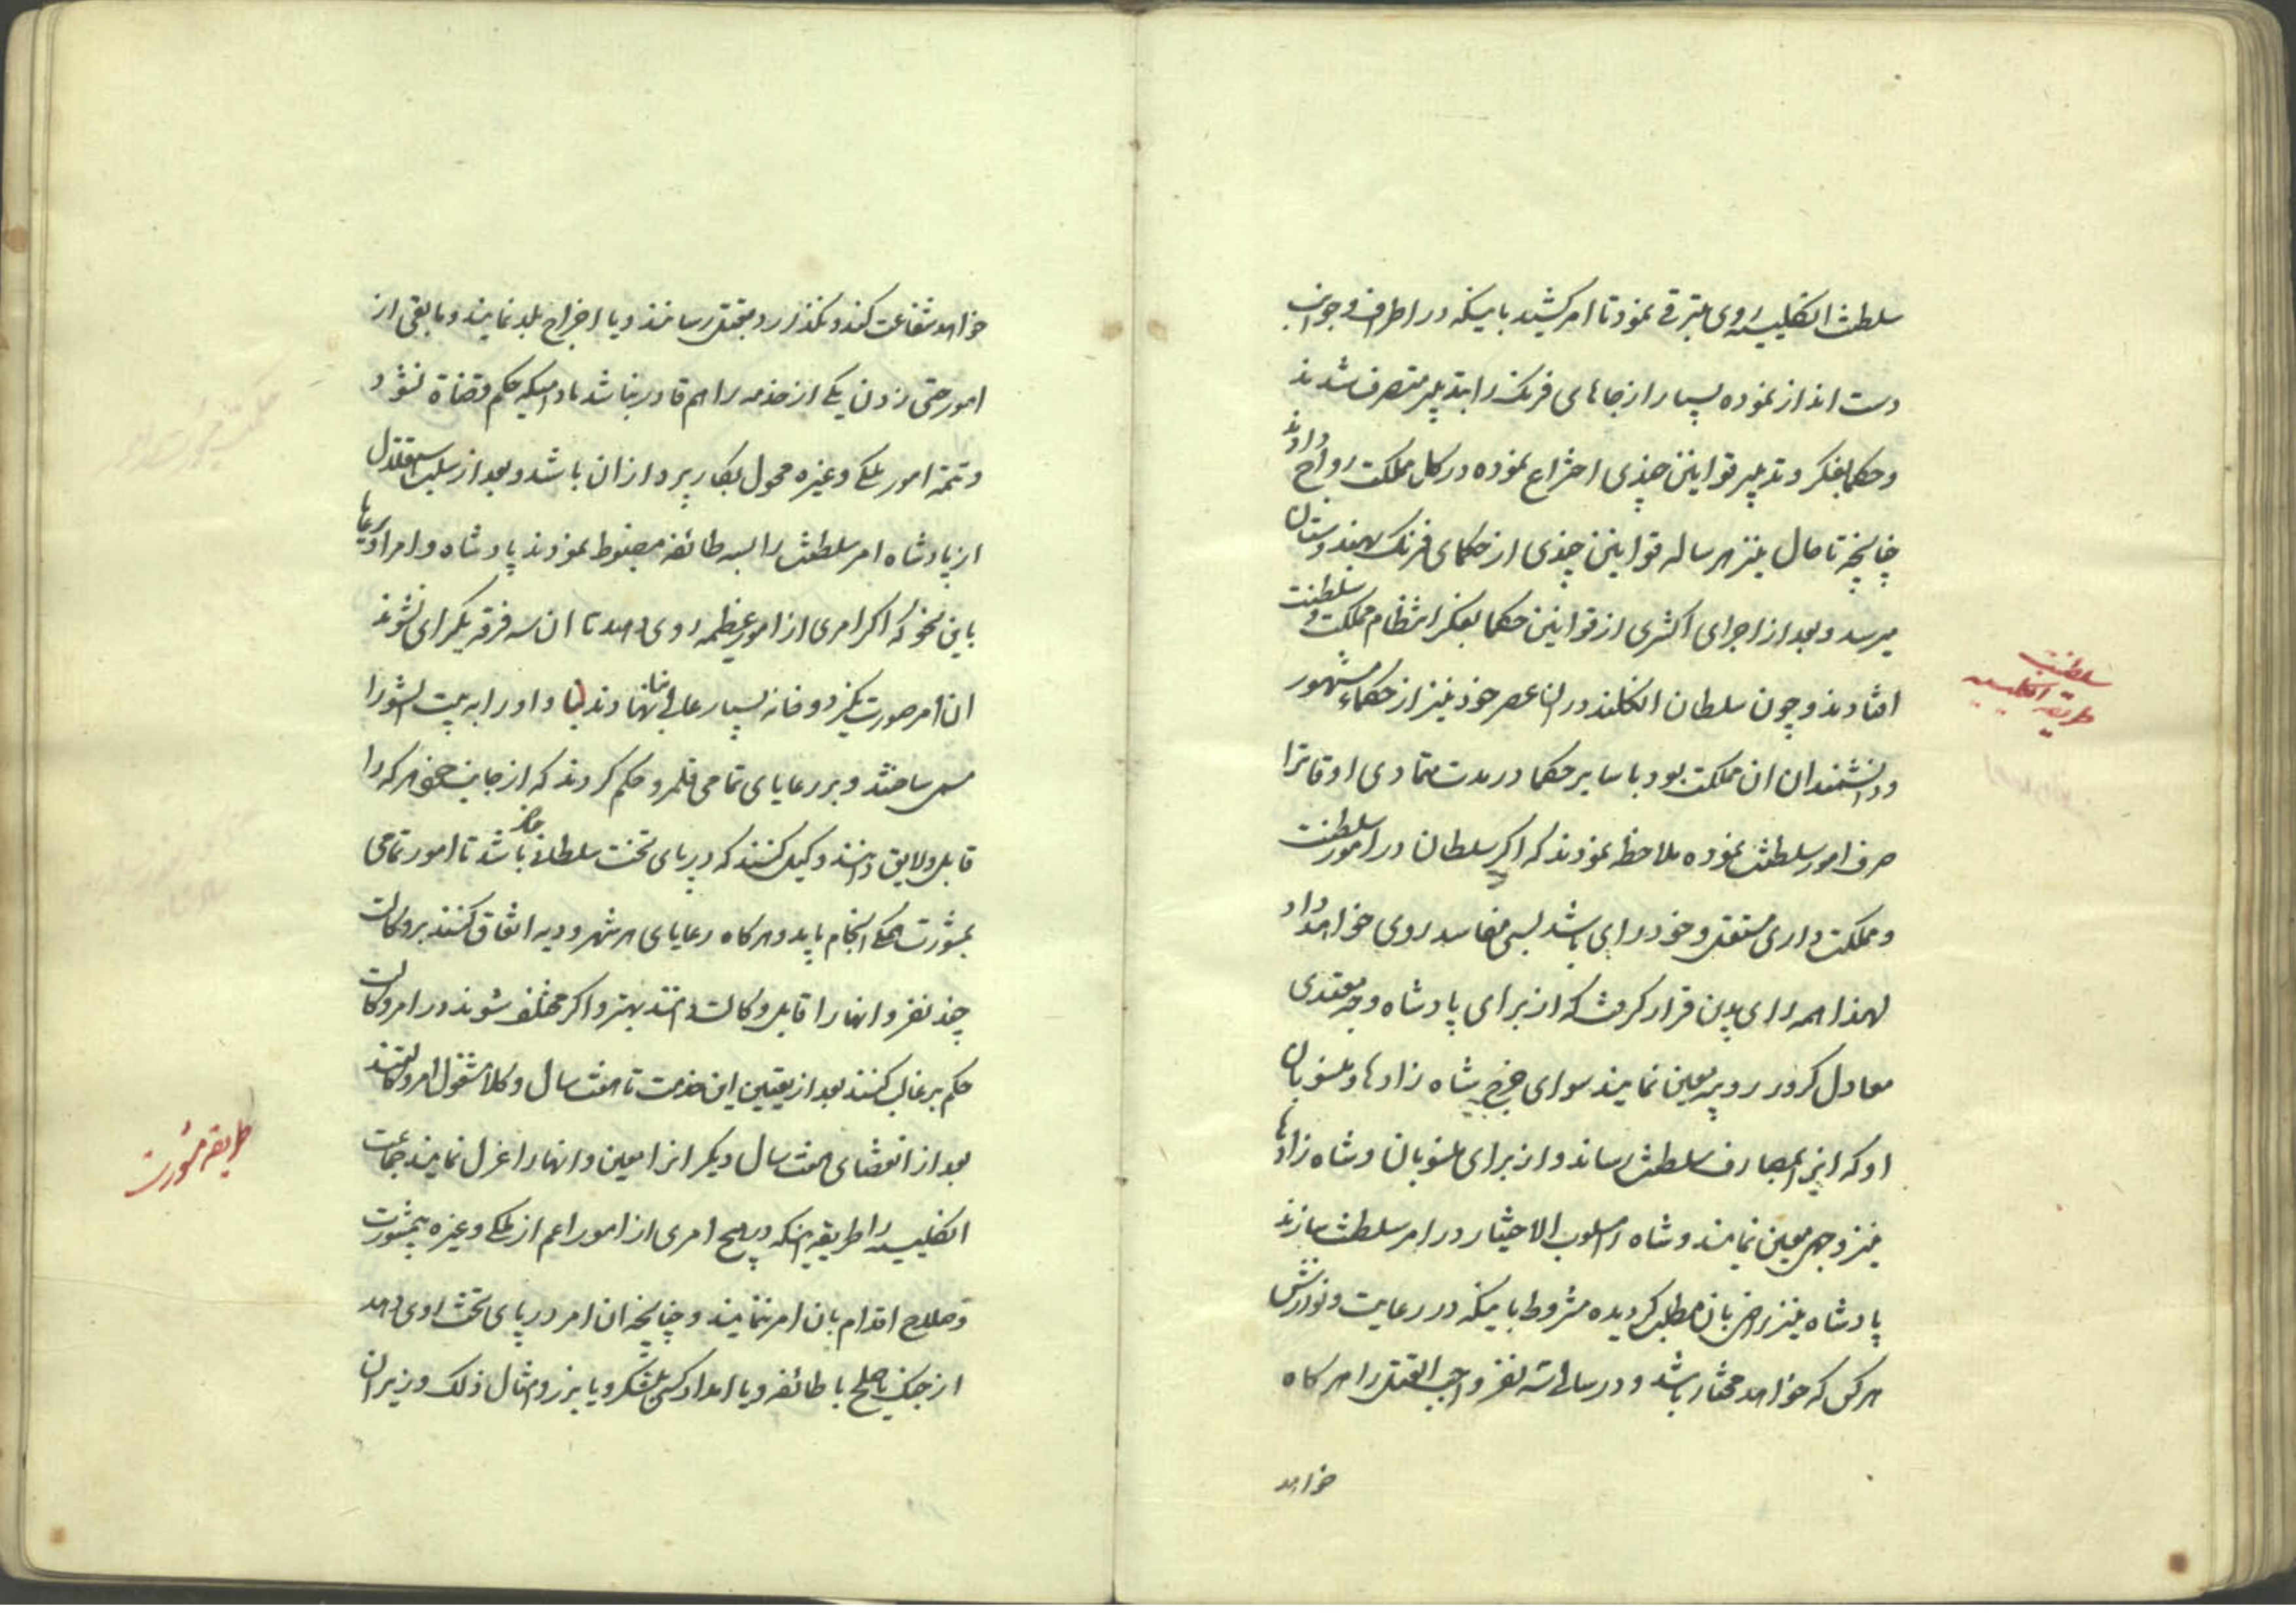 سلطنت انکلیسیه روی بترقی نمود تا امر کشید باینکه در اطراف و جوانب
دست انداز نموده بسیار از جاهای فرنک را بتدبیر متصرف شدند
و حکما بفکر و تدبیر قوانین چندی اختراع نموده در کل مملکت رواج دادند
چنانچه تا حال نیز هر ساله قوانین چندی از حکمای فرنک بهندوستان
میرسد و بعد از اجرای اکثری از قوانین حکما بفکر انتظام مملکت و سلطنت
افتادند و چون سلطان انکلند در ان عصر خود نیز از حکماء مشهور
و دانشمندان ان مملکت بود با سایر حکما در مدت متمادی اوقات را
صرف امور سلطنت نموده ملاحظه نمودند که اکر سلطان در امور سلطنت
و مملکت داری مستقل و خود رای باشد بسی مفاسد روی خواهد داد
لهذا همه رای بدین قرار کرفت که از برای پادشاه وجه معتدی
معادل کرور روپیه معین نمایند سوای خرج شاه زادها و منسوبان
او که انرا بمصارف سلطنت رساند و از برای منسوبان و شاه زادها
نیز وجهی معین نمایند و شاه را مسلوب الاختیار در امر سلطنت سازند
پادشاه نیز راضی بان مطلب کردیده مشروط باینکه در رعایت و نوازش
هر کس که خواهد مختار باشد و در سالی سه نفر واجب القتل را هر کاه
خواهد
سلطنت
طریقه انکلیسیه
خواهد شفاعت کند و نکذارد بقتل رسانند و یا اخراج بلد نمایند و مابقی از
امور حتی زدن یکی از خدمه را هم قادر نباشد مادامیکه حکم قضاة نشود
و تتمه امور ملکی و غیره محول بکار پردازان باشد و بعد از سلب استقلال
از پادشاه امر سلطنت را بسه طائفه مضبوط نمودند پادشاه و امرا و رعایا
باین نحو که اکر امری از امور عظیمه روی دهد تا ان سه فرقه یکرای نشوند
ان امر صورت نکیرد و خانه بسیار عالی بنا نهادند و او را به بیت الشورا
مسمی ساختند و بر رعایای تمامی قلمرو حکم کردند که از جانب خود هر که را
قابل و لایق دانند وکیل کنند که در پای تخت سلطان حاضر باشد تا امور تمامی
بمشورت همکی انجام یابد و هر کاه رعایای هر شهر و دیه اتفاق کنند بر وکالت
چند نفر و انها را قابل وکالت دانند بهتر و اکر مختلف شوند در امر وکالت
حکم بر غالب کنند بعد از تعیین این خدمت تا هفت سال وکلا مشغول امر وکالتند
بعد از انقضای هفت سال دیکر انرا معین و انها را عزل نمایند جماعت
انکلیسیه را طریقه اینکه در هیچ امری از امور اعم از ملکی و غیره بی مشورت
و صلاح اقدام بان امر ننمایند و چنانچه ان امر در پای تخت روی دهد
از جنک یا صلح با طائفه و یا امداد کسی بلشکر و یا بزر و امثال ذلک وزیران
طریقه مشورت